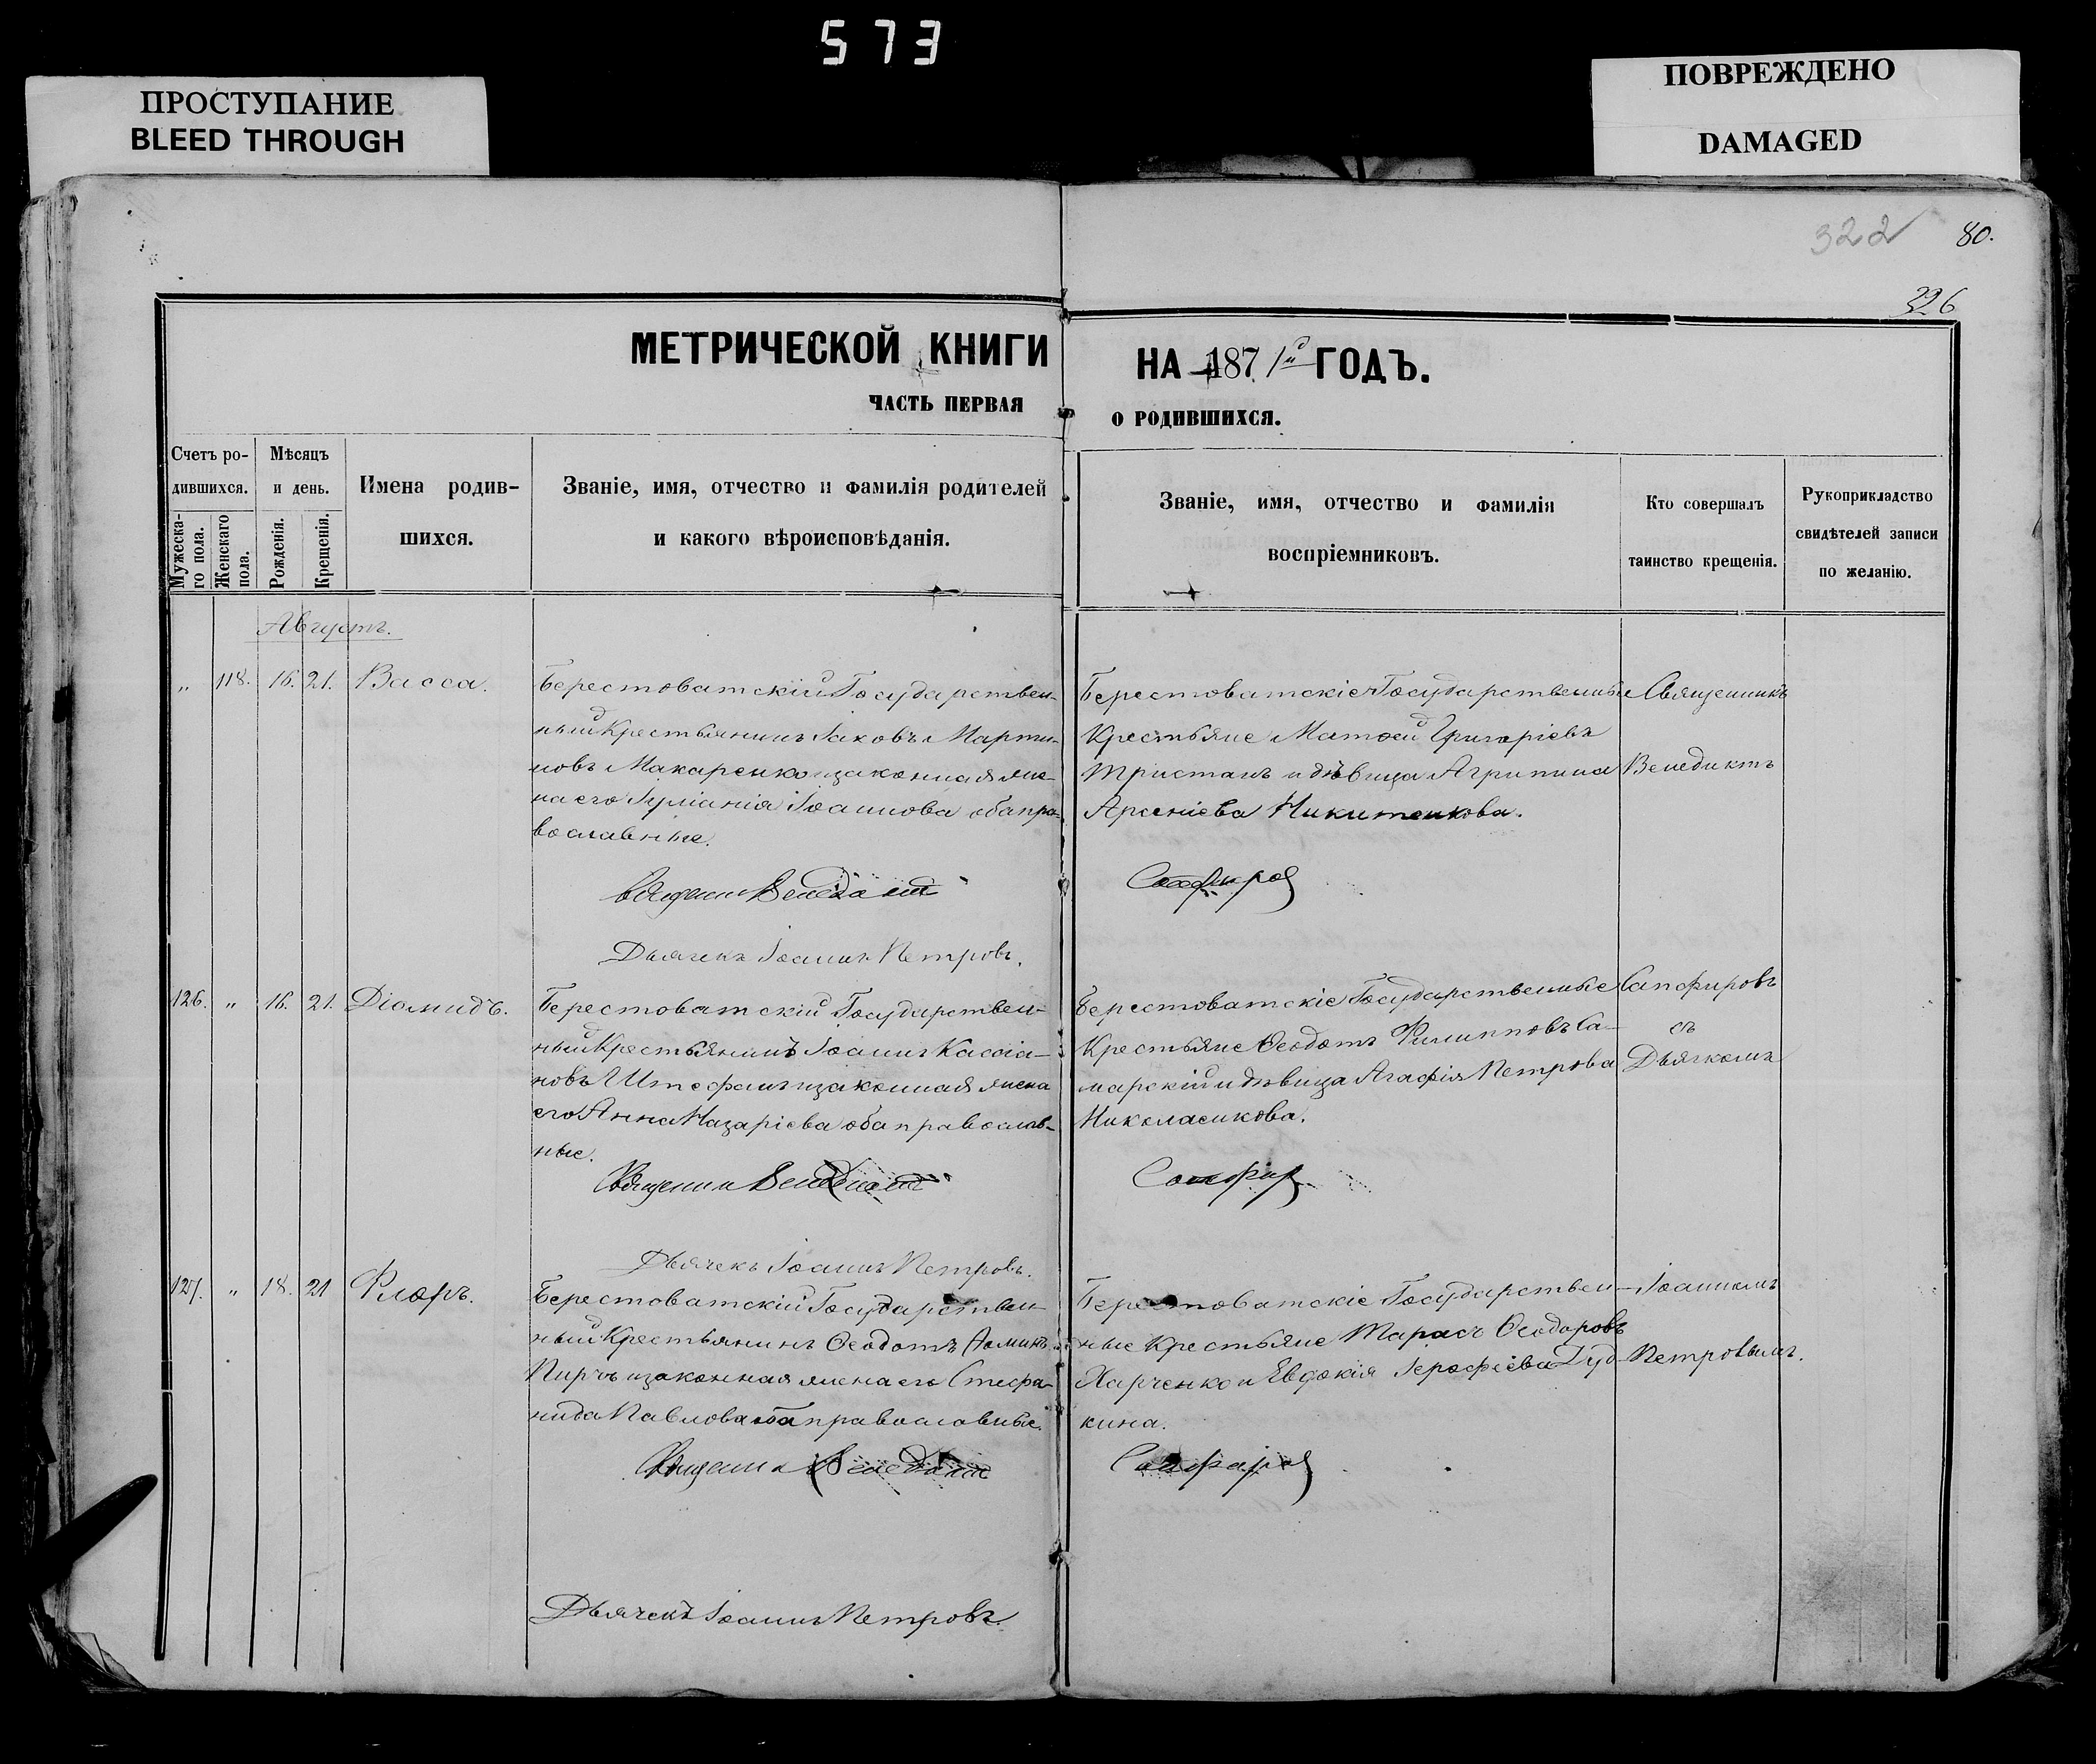 573
ПРОСТУПАНИЕ
BLEED THROUGH
ПОВРЕЖДЕНО
DAMAGED
322
80.
326
МЕТРИЧЕСКОЙ КНИГИ НА 1871й ГОДЪ.
ЧАСТЬ ПЕРВАЯ О РОДИВШИХСЯ.
Счетъ ро-
дившихся.
Мужеска-
го пола.
Женскаго
пола.
Мѣсяцъ
и день.
Рожденія.
Крещенія.
Имена родив-
шихся.
Званіе, имя, отчество и фамилія родителей
и какого вѣроисповѣданія.
Званіе, имя, отчество и фамилія
воспріемниковъ.
Кто совершалъ
таинство крещенія.
Рукоприкладство
свидѣтелей записи
по желанію.
Августъ.
„ 118. 16. 21. Васса.
Берестоватскій Государствен-
ный Крестьянинъ Іаковъ Марти-
новъ Макаренко и законная же-
на его Іуліанія Іоаннова оба пра-
вославные.
Священникъ Венедиктъ
Дьячекъ Іоаннъ Петровъ.
Берестоватскіе Государственные
Крестьяне Матѳей Григоріевъ
Тристанъ и дѣвица Агрипина
Арсеніева Никитенкова.
Сапфировъ
Священникъ
Венедиктъ
126. „ 16. 21. Діомидъ.
Берестоватскій Государствен-
ный Крестьянинъ Іоаннъ Кассіа-
новъ Штефанъ и законная жена
его Анна Назаріева оба православ-
ные.
Священникъ Венедиктъ
Дьячекъ Іоаннъ Петровъ.
Берестоватскіе Государственные
Крестьяне Ѳеодотъ Филипповъ Са-
марскій и дѣвица Агафія Петрова
Николаенкова.
Сапфир
Сапфировъ
съ
Дьячкомъ
127. „ 18. 21 Флоръ.
Берестоватскій Государствен-
ный Крестьянинъ Ѳеодотъ
Пирчъ и законная жена его Стефа-
нида Павлова оба православные.
Священникъ Венедиктъ
Дьячекъ Іоаннъ Петровъ.
Берестоватскіе Государствен-
ные Крестьяне Тарасъ Ѳеодоровъ
Харченко и Евдокія Іерофеева Дуд-
кина.
Сапфировъ
Іоанномъ
Петровымъ.